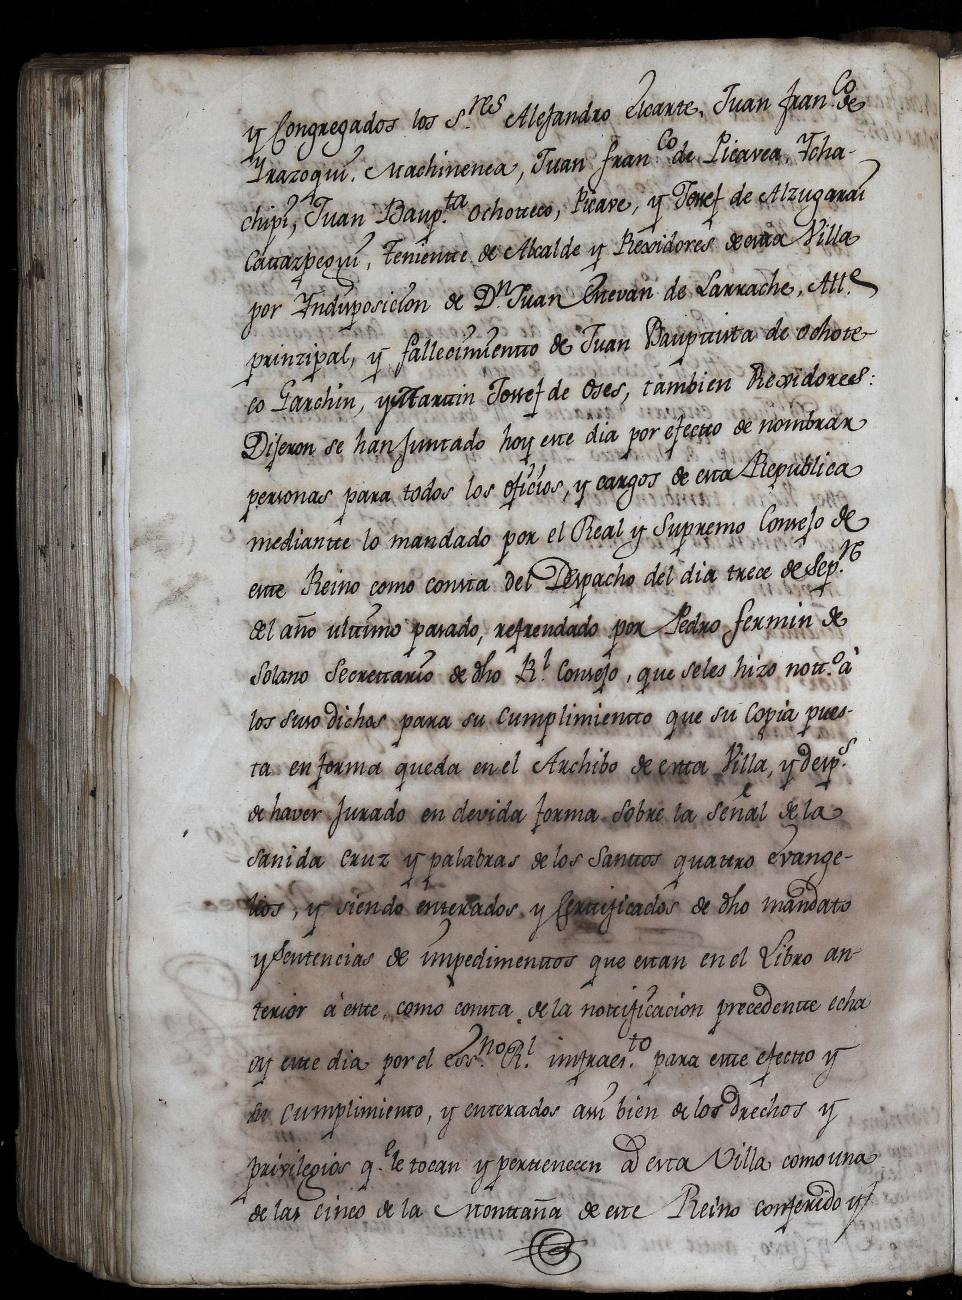 y Congregados los S.res Alejandro Elcarte, Juan Fran.co de
Yrazoqui, Machinenea, Juan Fran.co de Picavea, Ycha-
chipi, Juan Baup.ta Ochoteco, Picave, y Josef de Alzugarai
Cattazpegui, Teniente de Alcalde y Rexidores de esta Villa
por Yndisposicion de D.n Juan Estevan de Larrache, All.e
prinzipal, y fallecimientto de Juan Bauptista de Ochote-
co Garchin, y Martin Josef de Oses, tambien Rexidores:
Dijeron se han Juntado hoy este dia por efectto de nombrar
personas para todos los oficios, y cargos de esta Republica
mediantte lo mandado por el Real y Supremo Consejo de
este Reino como consta del Despacho del dia trece de Sep.re
del año ulttimo pasado, refrendado por Pedro Fermin de
Solano Secrettario de dho R.l Consejo, que seles hizo nott.o à
los suso dichos para su cumplimientto que su Copia pues-
ta en forma queda en el Archibo de esta Villa, y desp.s
de haver Jurado en devida forma sobre la señal de la
santda Cruz y palabras de los Santtos quattro Evange-
lios, y siendo enterados y Certtificados de dho mandato
y Sentencias de impedimenttos que estan en el Libro an-
terior à este, como consta de la nottificacion precedentte echa
oy este dia por el Ess.no R.l infraes.to para este efectto y
su cumplimiento, y enterados assi bien de los drechos y
privilegios q.e le tocan y pertenecen ad esta Villa como una
de las cinco de la Monttaña de este Reino conferido y